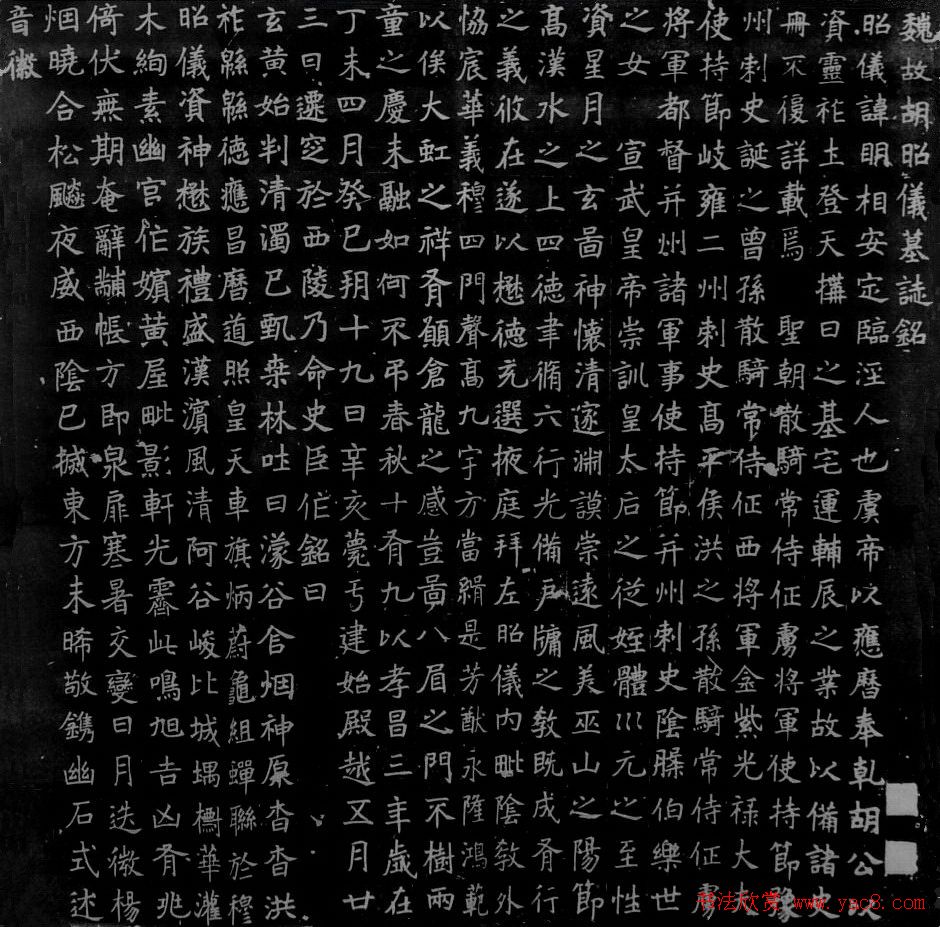 魏故胡昭儀墓誌銘
昭儀諱明相安定臨涇人也虞帝以應曆奉乹胡公以
資靈祚土登天構日之基宅運輔辰之業故以備諸史
冊不復詳載焉 聖朝散騎常侍征虜將軍使持節豫
州刺史誕之曾孫散騎常侍征西將軍金紫光祿大夫
使持節岐雍二州刺史高平侯洪之孫散騎常侍征虜
將軍都督并州諸軍事使持節并州刺史陰槃伯樂世
之女 宣武皇帝崇訓皇太后之從姪體巛元之至性
資星月之玄啚神懷清邃淵謨崇遠風美巫山之陽節
高漢水之上四德聿脩六行光備戶牖之教既成有行
之義攸在遂以懋德充選掖庭拜左昭儀內毗陰教外
協宸華義穆四門聲高九宇方當緝是芳猷永隆鴻範
以俟大虹之祥有願倉龍之感豈啚八眉之門不樹兩
童之慶未融如何不弔春秋十有九以孝昌三年歲在
丁未四月癸巳朔十九日辛亥薨于建始殿越五月廿
三日遷窆於西陵乃命史臣作銘曰
玄黃始判清濁已甄桒林吐日濛谷含烟神原杳杳洪
祚緜緜德應昌曆道照皇天車旗炳蔚龜組蟬聯於穆
昭儀資神懋族禮盛漢濵風清阿谷峻比城堣華灌
木絢素幽宮作嬪黃屋毗影軒光霽此鳴旭吉凶有兆
倚伏無期奄辭黼帳方即泉扉寒暑交變日月迭微楊
烟曉合松飈夜威西陰已搣東方未晞敬鐫幽石式述
音徽
书法欣赏 www.yac8.com